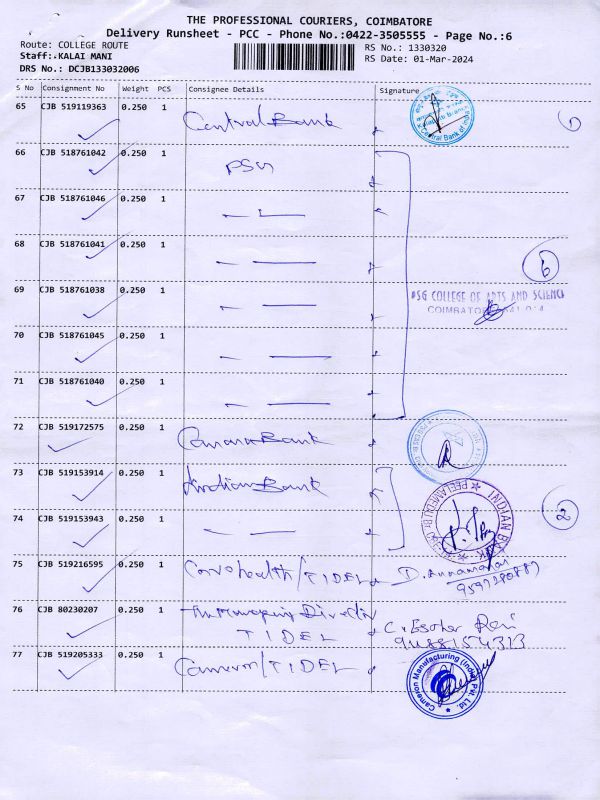 THE PROFESSIONAL COURIERS, COIMBATORE
Delivery Runsheet - PCC - Phone No.:0422-3505555 - Page No.:6
Route: COLLEGE ROUTE
RS No.: 1330320
Staff: KALAI MANI
RS Date: 01-Mar-2024
DRS No.: DCJB133032006
S No Consignment No Weight PCS Consignee Details Signature
65 CJB 519119363 0.250 1 Central Bank
Central Bank of India
66 CJB 518761042 0.250 1 PSG
67 CJB 518761046 0.250 1
68 CJB 518761041 0.250 1
6
69 CJB 518761038 0.250 1
PSG COLLEGE OF ARTS AND SCIENCE
COIMBATORE
70 CJB 518761045 0.250 1
71 CJB 518761040 0.250 1
72 CJB 519172575 0.250 1 Canara Bank
73 CJB 519153914 0.250 1 Indian Bank
INDIAN BANK
PEELAMEDU
2
74 CJB 519153943 0.250 1
75 CJB 519216595 0.250 1 / TIDEL
76 CJB 80230207 0.250 1
TIDEL
9488154323
77 CJB 519205333 0.250 1 Cameron / TIDEL
Cameron Manufacturing (India) Pvt. Ltd.